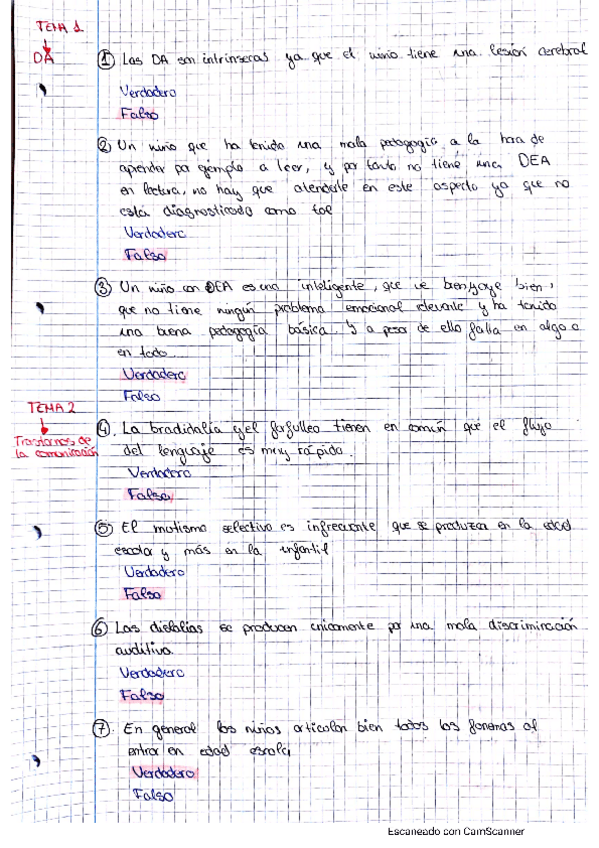 TEMA 1
DA
① Las DA son intrínsecas ya que el niño tiene una lesión cerebral
Verdadero
Falso
② Un niño que ha tenido una mala pedagogía a la hora de
aprender por ejemplo a leer, y por tanto no tiene una DEA
en lectura, no hay que atenderle en este aspecto ya que no
está diagnosticado como tal
Verdadero
Falso
③ Un niño con DEA es uno inteligente, que ve bien, oye bien,
que no tiene ningún problema emocional relevante y ha tenido
una buena pedagogía básica. Y a pesar de ello falla en algo o
en todo
Verdadero
Falso
TEMA 2
Trastornos de
la comunicación
④. La bradilalia y el farfulleo tienen en común que el flujo
del lenguaje es muy rápido.
Verdadero
Falso
⑤ El mutismo selectivo es infrecuente que se produzca en la edad
escolar y más en la infantil
Verdadero
Falso
⑥ Las dislalias se producen únicamente por una mala discriminación
auditiva.
Verdadero
Falso
⑦. En general los niños articulan bien todos los fonemas al
entrar en edad escolar
Verdadero
Falso
Escaneado con CamScanner